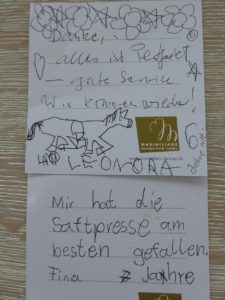 Danke,
alles ist Perfekt
gute Service
Wir kommen wieder!
MAXIMILIANS
6 Jahre alt
LEONORA
Mir hat die
Saftpresse am
besten gefallen.
Fina 7 Jahre